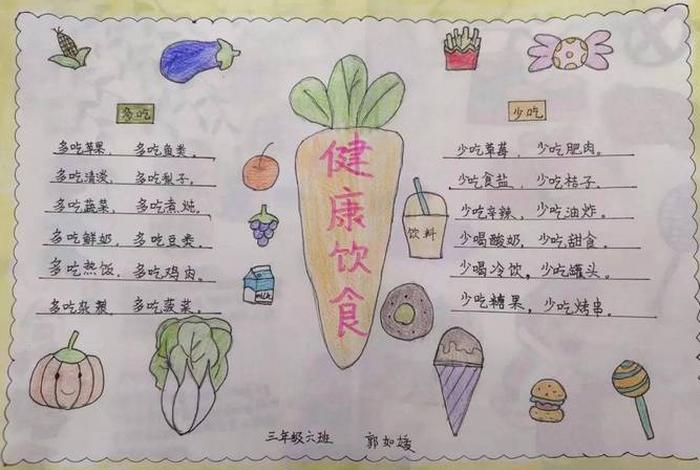 健康饮食
多吃
多吃苹果, 多吃鱼类。
多吃清淡, 多吃梨子。
多吃蔬菜, 多吃煮炖。
多吃鲜奶, 多吃豆类。
多吃热饭, 多吃鸡肉。
多吃杂粮, 多吃菠菜。
milk
饮料
少吃
少吃草莓, 少吃肥肉。
少吃食盐, 少吃桔子.
少吃辛辣, 少吃油炸。
少喝酸奶, 少吃甜食。
少喝冷饮, 少吃罐头。
少吃糖果, 少吃烤串。
三年级六班 郭如媛